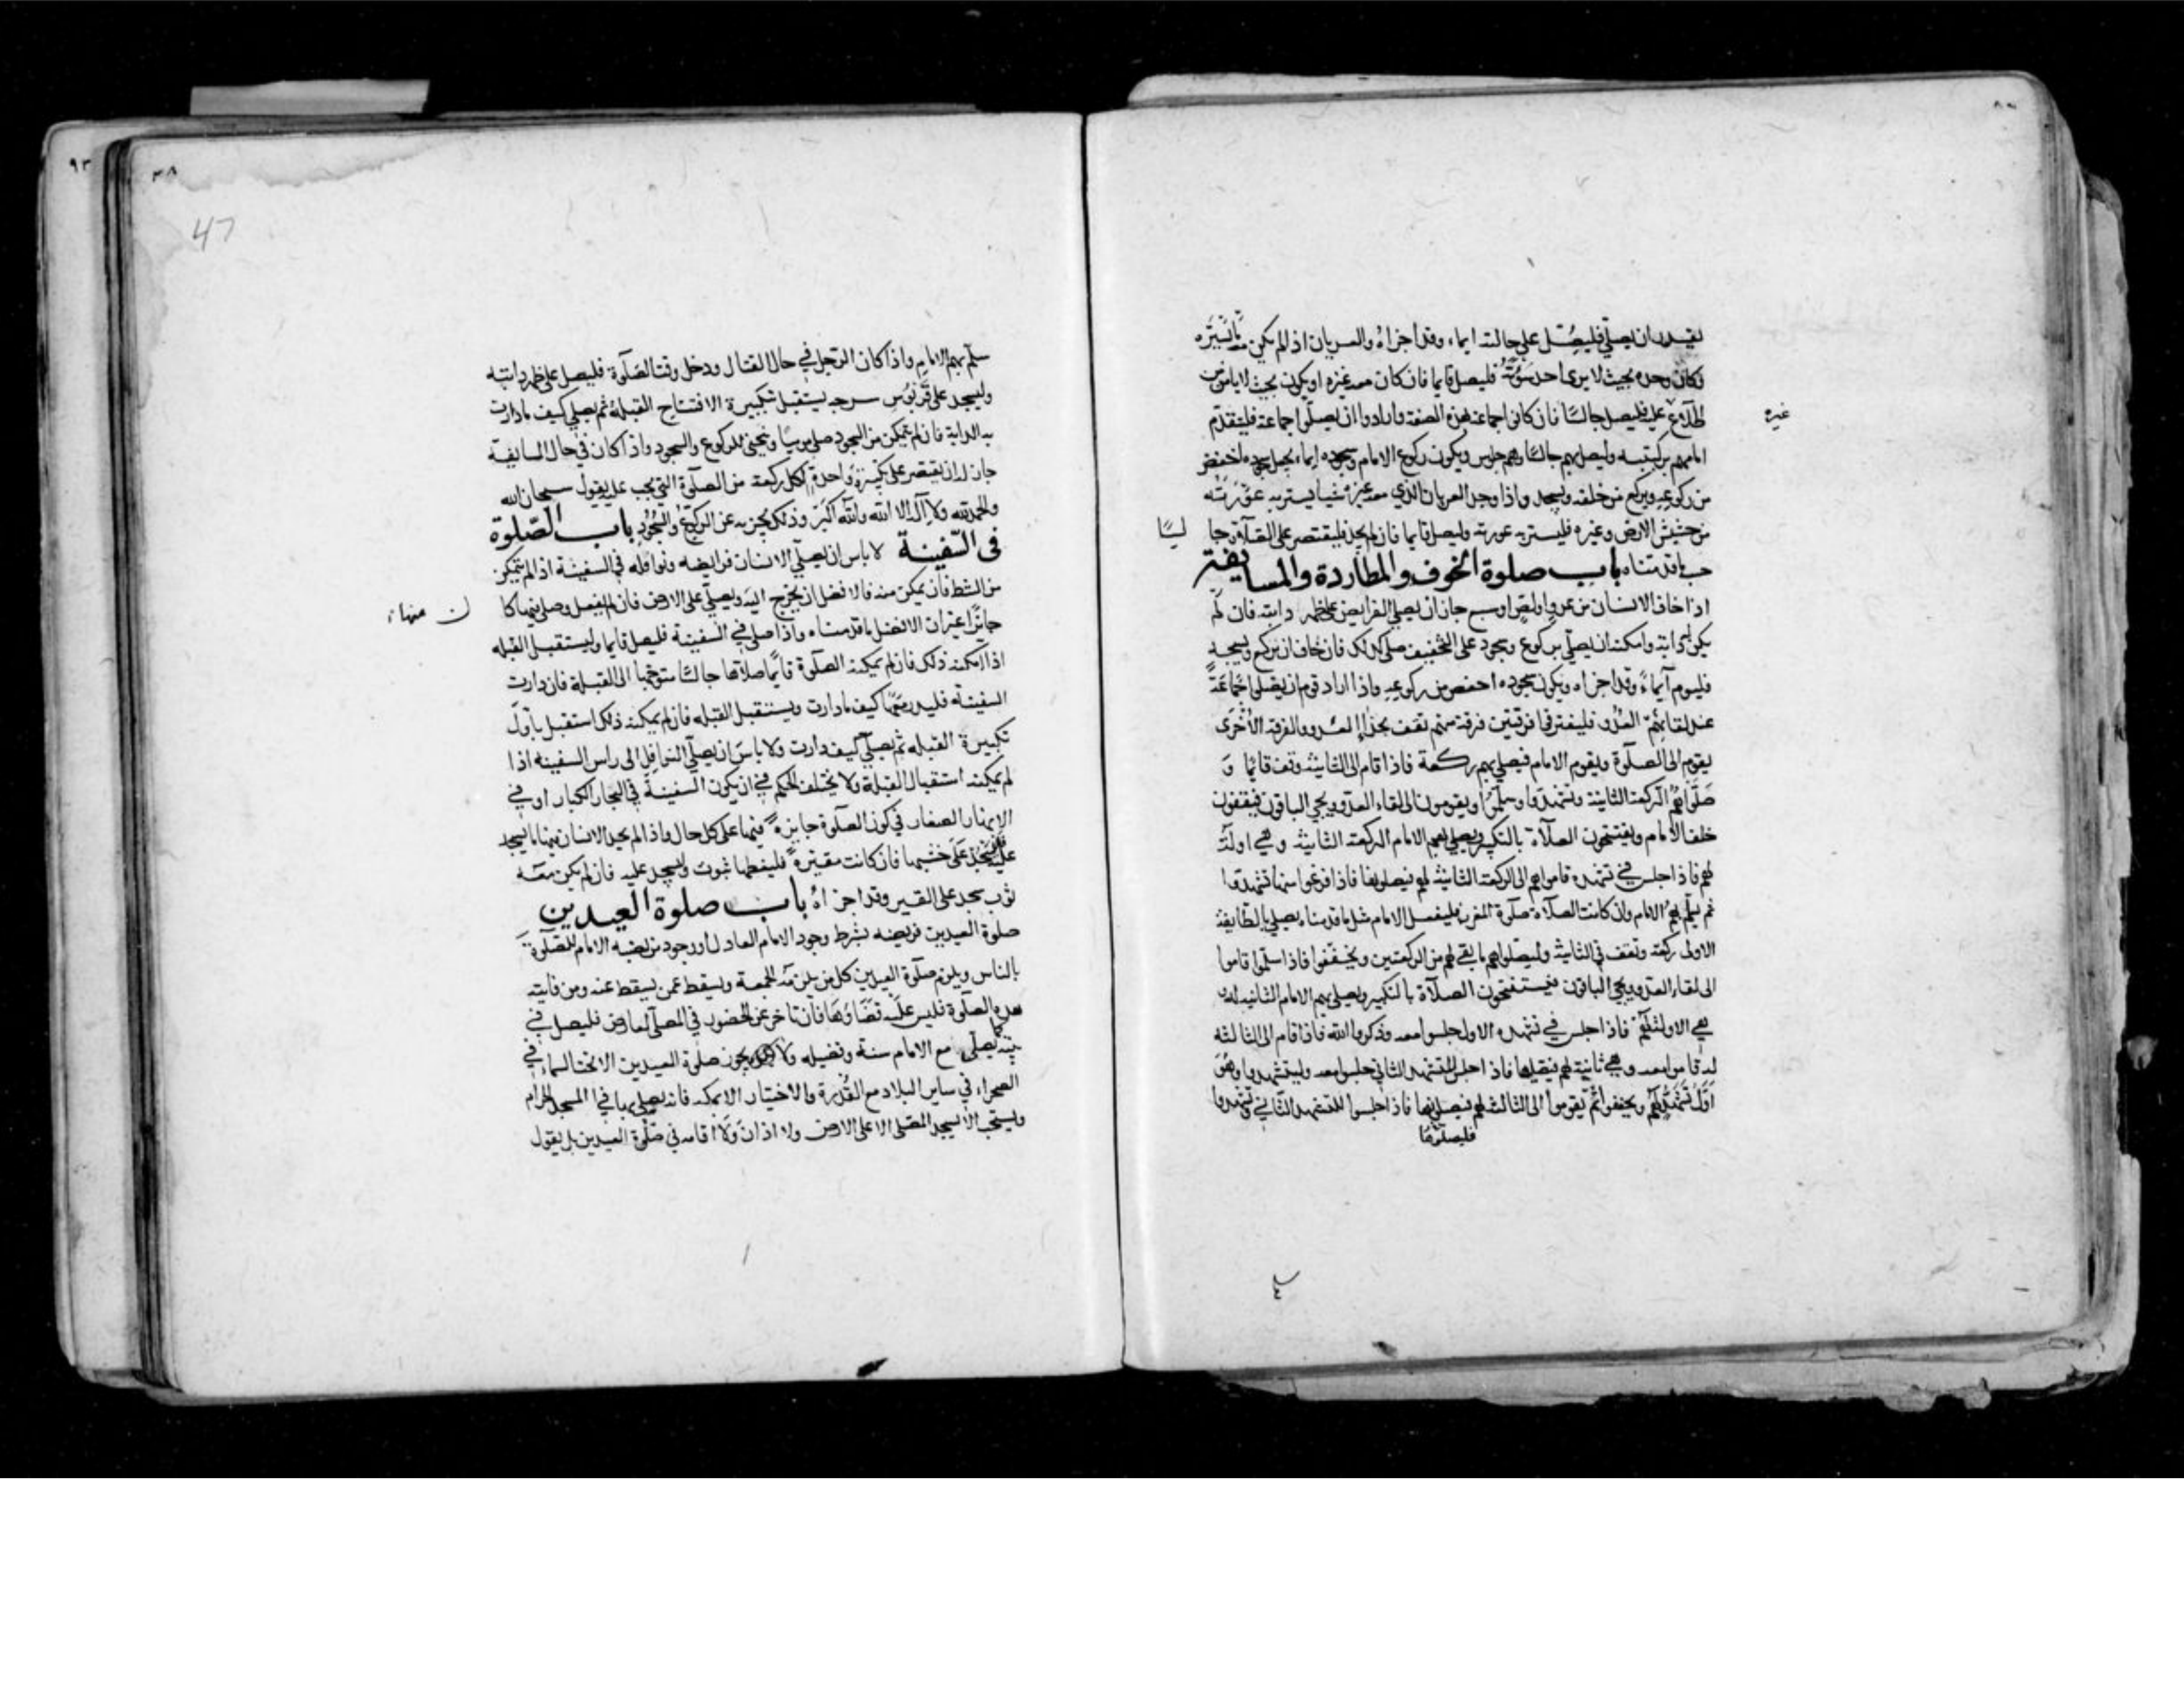 يقدر ان يصلي فليصل على حالته ايماء وقد اجزاه والعريان اذا لم يكن معه ما يستره
وكان وحده بحيث لا يرى احد سوءته فليصل قايما فان كان معه غيره او يكون بحيث لا يامن من
اطلاع عليه فليصل جالسًا فان كانوا جماعة بهذه الصفة وارادوا ان يصلوا جماعة فليتقدم
غيره
امامهم بركبتيه وليصل بهم جالسًا وهم جلوس ويكون ركوع الامام وسجوده ايماء يجعل سجوده اخفض
من ركوعه ويركع من خلفه ويسجد واذا وجد العريان الذي معه غيره شيا يستر به عورته
من حشيش الارض وغيره فليستر به عورته وليصل قايما فان لم يجد فليقتصر على الصلاة جا لسًا
حسب ما قدمناه باب صلوة الخوف والمطاردة والمسايفة
اذا خاف الانسان من عدو او لص او سبع جاز ان يصلي الفرايض على ظهر دابته فان لم
يكن له دابة وامكنه ان يصلي بركوع وسجود على التخفيف صلى كذلك فان خاف ان يركع ويسجد
فليوم ايماءً وقد اجزاه ويكون سجوده اخفض من ركوعه واذا اراد قوم ان يصلوا جماعةً
عند لقائهم العدو فليفترقا فرقتين فرقة منهم تقف بحذاء العدو والفرقة الأخرى
يقوم الى الصلوة ويقوم الامام فيصلي بهم ركعة فاذا قام الى الثانية وقف قائما و
صلوا هم الركعة الثانية وتشهدوا وسلموا ويقومون الى لقاء العدو ويجي الباقون فيقفون
خلف الامام ويفتتحون الصلاة بالتكبير ويصلي بهم الامام الركعة الثانية وهي اولة
لهم فاذا جلس في تشهده قاموا هم الى الركعة الثانية لهم فيصلونها فاذا فرغوا منها تشهدوا
ثم يسلم بهم الامام وان كانت الصلاة صلوة المغرب فليفعل الامام مثل ما قدمناه يصلي بالطايفة
الاولى ركعة وتقف في الثانية وليصلوا هم ما بقي لهم من الركعتين ويخففوا فاذا سلموا قاموا
الى لقاء العدو ويجي الباقون فيستفتحون الصلاة بالتكبير ويصلي بهم الامام الثانية له
هي الاولة لهم فاذا جلس في تشهده الاول جلسوا معه وذكروا الله فاذا قام الى الثالثة
له قاموا معه وهي ثانية لهم فيصليها فاذا جلس للتشهد الثاني جلسوا معه وليتشهدوا وهو
اول تشهد لهم ويخففوا ثم يقوموا الى الثالثة لهم فيصلونها فاذا جلسوا للتشهد الثاني وتشهدوا
فليصلوها
٩٣
٣٨
47
سلم بهم الامام واذا كان الرجل في حال القتال ودخل وقت الصلوة فليصل على ظهر دابته
وليسجد على قربوس سرجه يستقبل بتكبيرة الافتتاح القبلة ثم يصلي كيف ما دارت
به الدابة فان لم يتمكن من السجود صلى موميًا وينحني للركوع والسجود واذا كان في حال المسايفة
جاز له ان يقتصر على تكبيرة واحدة لكل ركعة من الصلوة التي تجب عليه يقول سبحان الله
والحمد لله ولا اله الا الله والله اكبر وذلك يجزيه عن الركوع والسجود باب الصلوة
فى السفينة لا باس ان يصلي الانسان فرايضه ونوافله في السفينة اذا لم يتمكن
من الشط فان يمكن منه فالافضل ان يخرج اليه ويصلي على الارض فان لم يفعل وصلى فيها كا ن منهاء
جائزا غير ان الافضل ما قدمناه واذا صلى في السفينة فليصل قايما وليستقبل القبله
اذا امكنه ذلك فان لم يمكنه الصلوة قايما صلاها جالسًا متوجها الى القبلة فان دارت
السفينة فليدر معها كيف ما دارت ويستقبل القبله فان لم يمكنه ذلك استقبل باول
تكبيرة القبله ثم يصلي كيف دارت ولا باس ان يصلي النوافل الى راس السفينة اذا
لم يمكنه استقبال القبلة ولا يختلف الحكم في ان يكون السفينة في البحار الكبار او في
الانهار الصغار في كون الصلوة جايزةً فيها على كل حال واذا لم يجد الانسان فيها ما يسجد
عليه فليسجد على خشبها فان كانت مقيرةً فليغطها بثوب وليسجد عليه فان لم يكن معه
ثوب سجد على القير وقد اجزاه باب صلوة العيدين
صلوة العيدين فريضه بشرط وجود الامام العادل او وجود من نصبه الامام للصلوة
بالناس ويلزم صلوة العيدين كل من يلزمه الجمعة ويسقط عمن يسقط عنه ومن فاتته
هذه الصلوة فليس عليه قضاؤها فان تاخر عن الحضور في المصلى لعارض فليصل في
بيته كما يصلي مع الامام سنة وفضيله ولا يجوز صلوة العيدين الا تحت السماء في
الصحراء في ساير البلاد مع القدرة والاختيار الا بمكه فانه يصلى بها في المسجد الحرام
ويستحب الا يسجد المصلى الا على الارض ولا اذان ولا اقامه في صلوة العيدين بل يقول